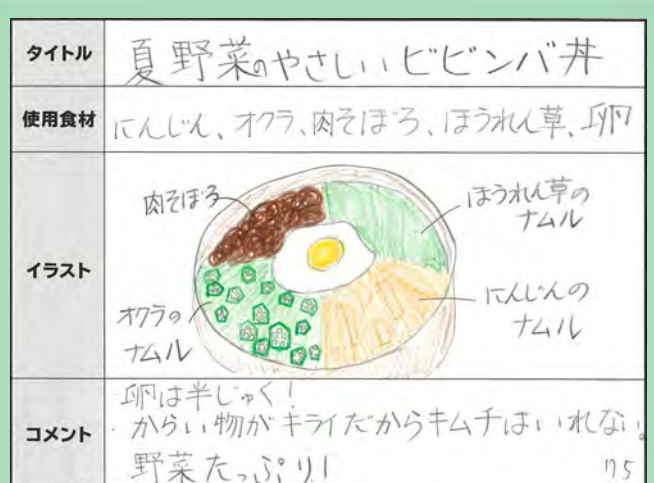 タイトル
夏野菜のやさしいビビンバ丼
使用食材
にんじん、オクラ、肉そぼろ、ほうれん草、卵
イラスト
肉そぼろ
ほうれん草の
ナムル
オクラの
ナムル
にんじんの
ナムル
コメント
・卵は半じゅく!
・からい物がキライだからキムチはいれない。
野菜たっぷり!